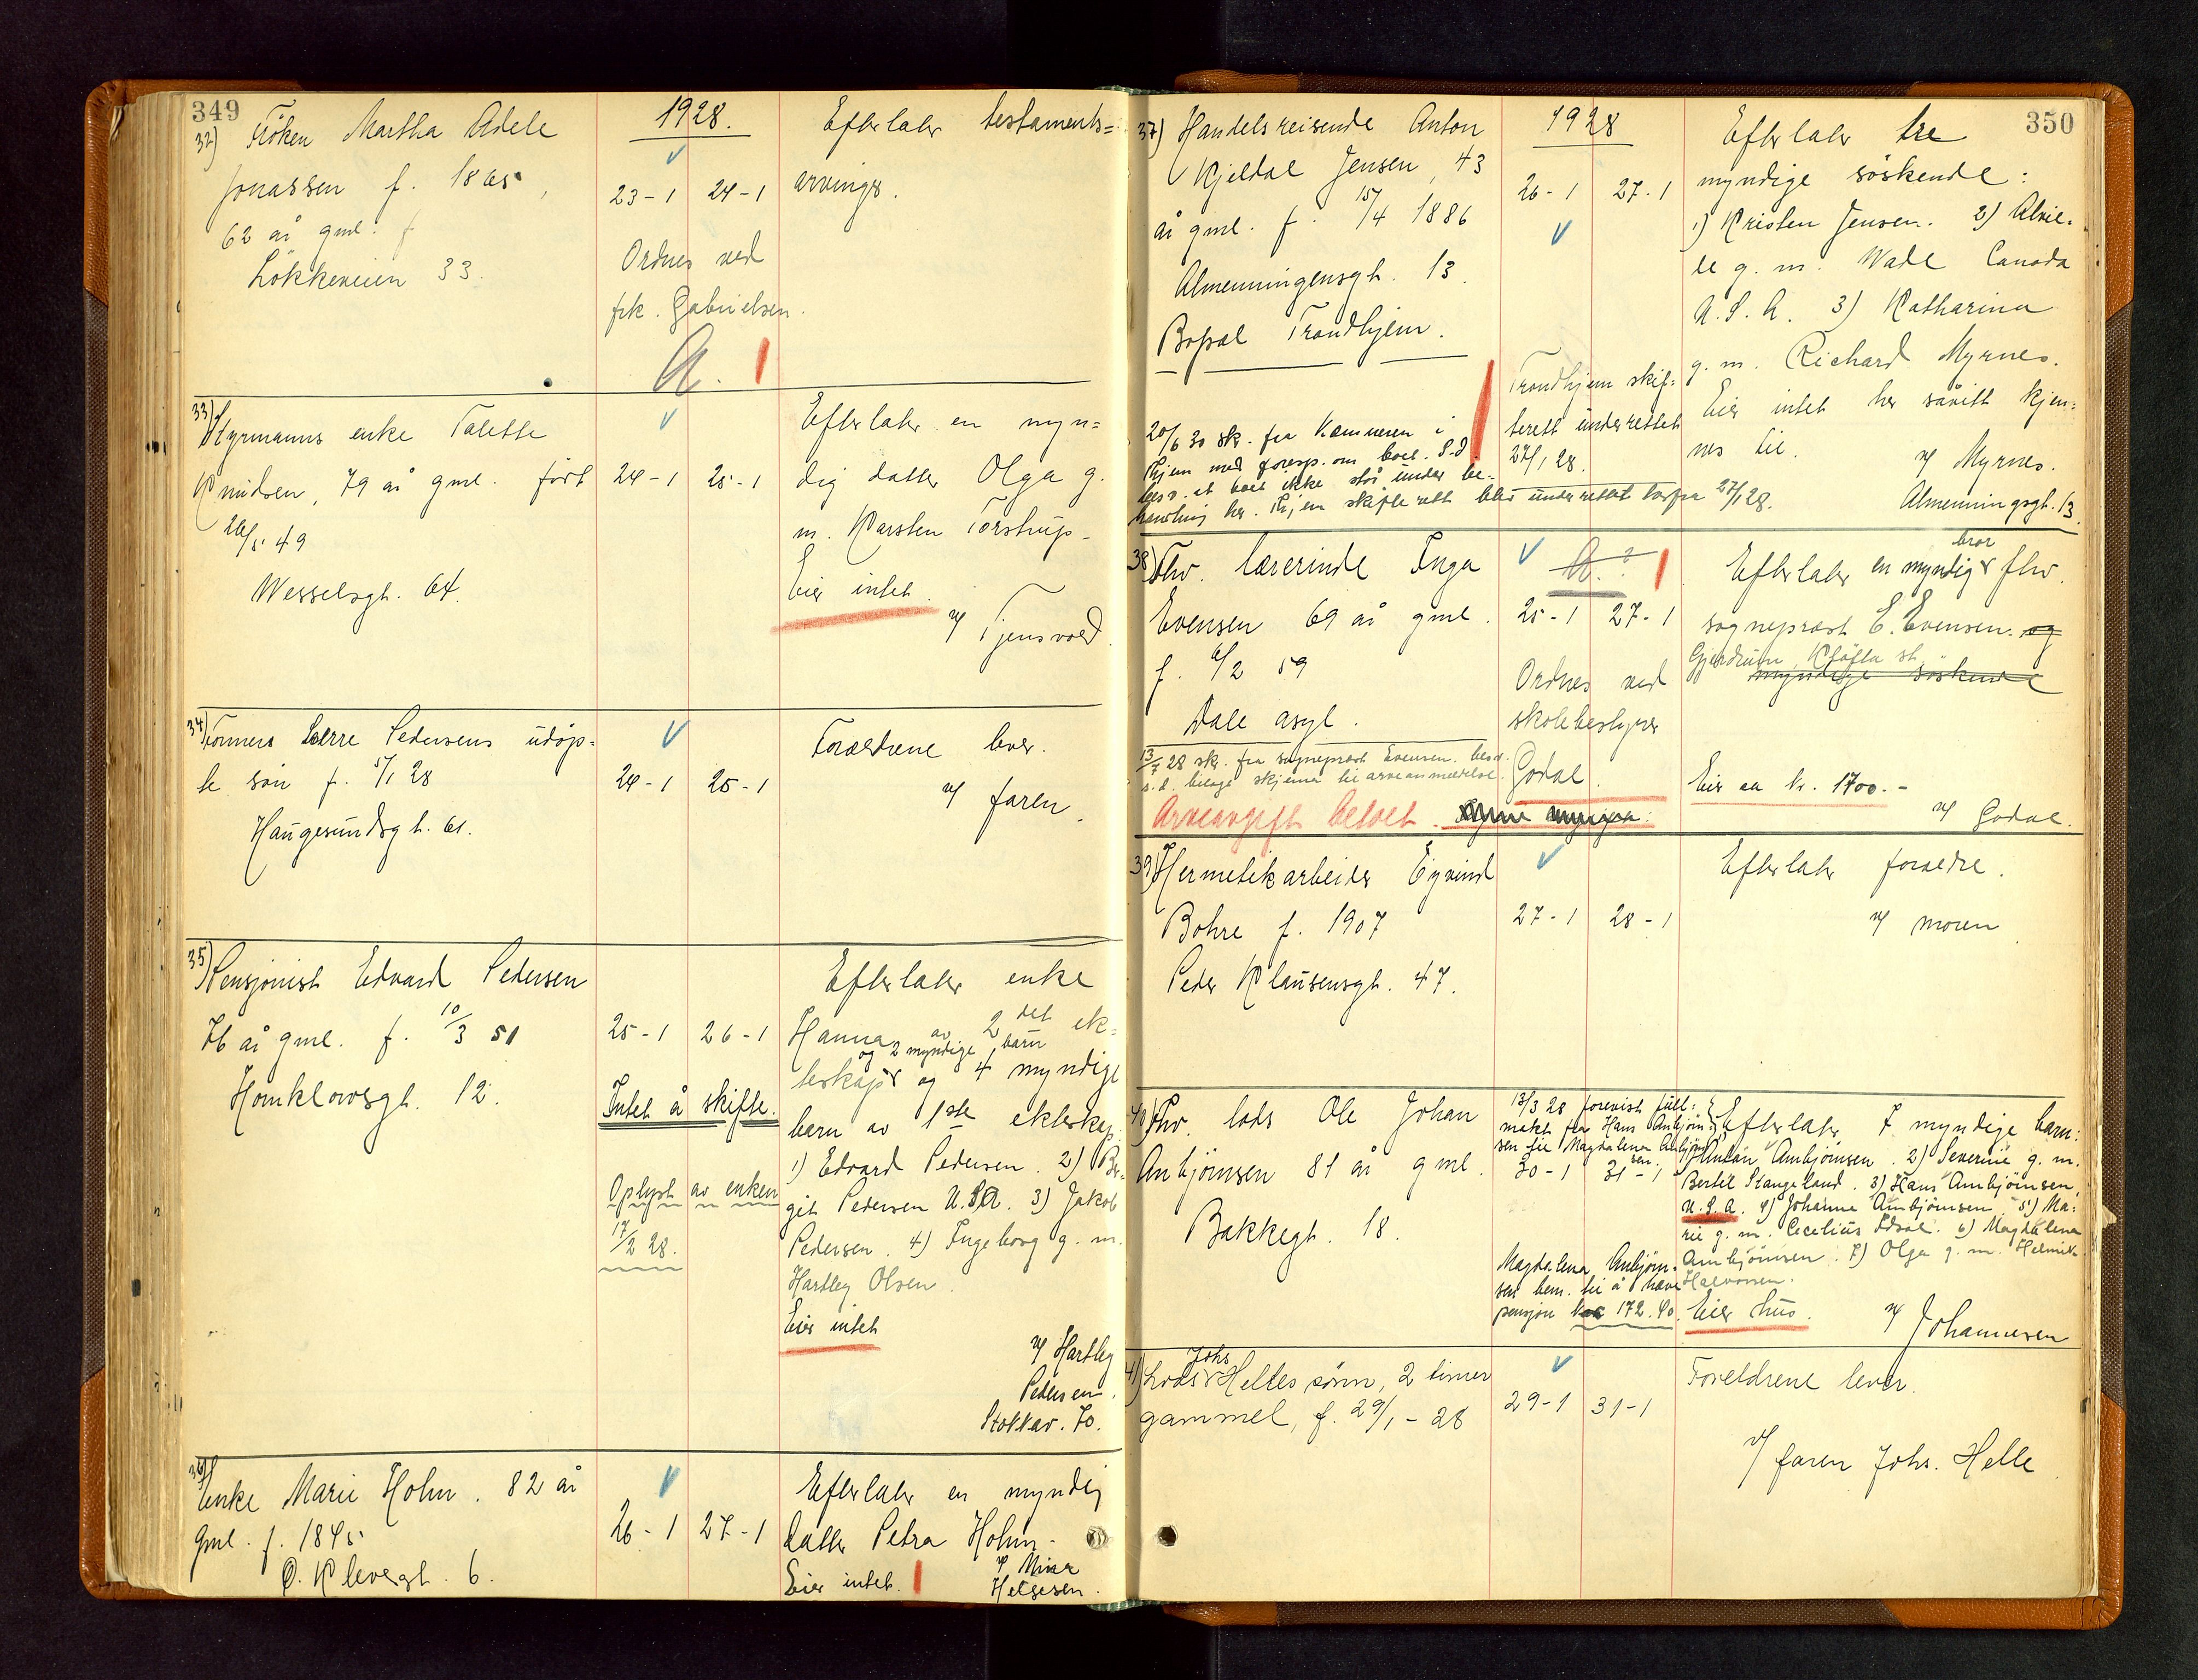 349
1928.
32) Frøken Martha Adele
Jonassen f. 1865,
62 år gml. f
Løkkeveien 33.
23-1 24-1
Ordnes ved
frk. Gabrielsen.
A.
Efterlater testaments=
arvinger.
33) Styrmanns enke Talette
Knudsen, 79 år gml. født
26/5 49
Wesselsgt. 64.
24-1 25-1
Efterlater en myn=
dig datter Olga g.
m. Karsten Torstrup.
Eier intet.
v/ Tjensvold.
34) Formers Sverre Pedersens udøp=
te søn f. 5/1 28
Haugesundsgt. 61.
24-1 25-1
Foreldrene lever.
v/ faren.
35) Pensjonist Edvard Pedersen
76 år gml. f. 10/3 51
Homklowsgt. 12.
25-1 26-1
Intet å skifte.
Oplyst av enken
17/2 28.
Efterlater enke
Hanna av 2det ek=
og 2 myndige barn
teskap og 4 myndige
barn av 1ste ekteskap:
1) Edvard Pedersen. 2) Bir-
git Pedersen U.S.A. 3) Jakob
Pedersen. 4) Ingeborg g. m.
Hartley Olsen.
Eier intet
v/ Hartley
Pedersen.
Stokkav. 70.
36) Enke Marie Holm. 82 år
gml. f. 1845
O. Klevesgt. 6.
26-1 27-1
Efterlater en myndig
datter Petra Holm.
Eier intet.
v/ Mina
Helgesen.
350
1928
37) Handelsreisende Anton
Kjeldal Jensen, 43
år gml. f. 15/4 1886
Almenningensgt. 13.
Bopæl Trondhjem.
26-1 27-1
Trondhjem skif=
terett underrettet
27/1 28.
20/6 30 skr. fra Kæmneren i
Thjem med foresp. om boet. S.d.
besv. at boet ikke står under be-
handling her. Thjem skifterett blev underrettet herfra 27/1 28.
Efterlater tre
myndige søskende:
1) Kristen Jensen. 2) Alvil-
de g. m. Wade Canada
U.S.A. 3) Katharina
g. m. Richard Myrnes.
Eier intet her såvitt kjen=
nes til.
v/ Myrnes.
Almenningsgt. 13.
38) Fhv. lærerinde Inga
Evensen 69 år gml.
f. 6/2 59
Dale asyl.
A.
25-1 27-1
Ordnes ved
skolebestyrer
Godal.
13/7 28 skr. fra sogneprest Evensen. besv.
s.d. bilagt skjema til arveanmeldelse.
Arveavgift betalt.
Efterlater en myndig bror fhv.
sogneprest E. Evensen. og
Gjerdrum, Kløfta st.
myndige søskende
Eier ca kr. 1700.-
v/ Godal.
39) Hermetikarbeider Eyvind
Bohre f. 1907
Peder Klausensgt. 47.
27-1 28-1
Efterlater foreldre.
v/ moren
40) Fhv. lods Ole Johan
Anbjørnsen 81 år gml.
Bakkegt. 18.
13/3 28 forevist full=
makt fra Hans Anbjørn=
sen til Magdalena Anbjørn
sen.
30-1 31-1
Magdalena Anbjørn-
sen bem. til å heve
pensjon kr 172.40.
Efterlater 7 myndige barn:
1) Anton Ambjørnsen. 2) Severine g. m.
Bertil Stangeland. 3) Hans Ambjørnsen,
U.S.A. 4) Johanna Ambjørnsen 5) Ma=
rie g. m. Cecilius Edvar. 6) Magdalena
Ambjørnsen. 7) Olga g. m. Helmik
Halvorsen.
Eier hus.
v/ Johannesen
41) Lods Johs Helles sønn, 2 timer
gammel, f. 29/1-28
29-1 31-1
Foreldrene lever.
v/ faren Johs. Helle